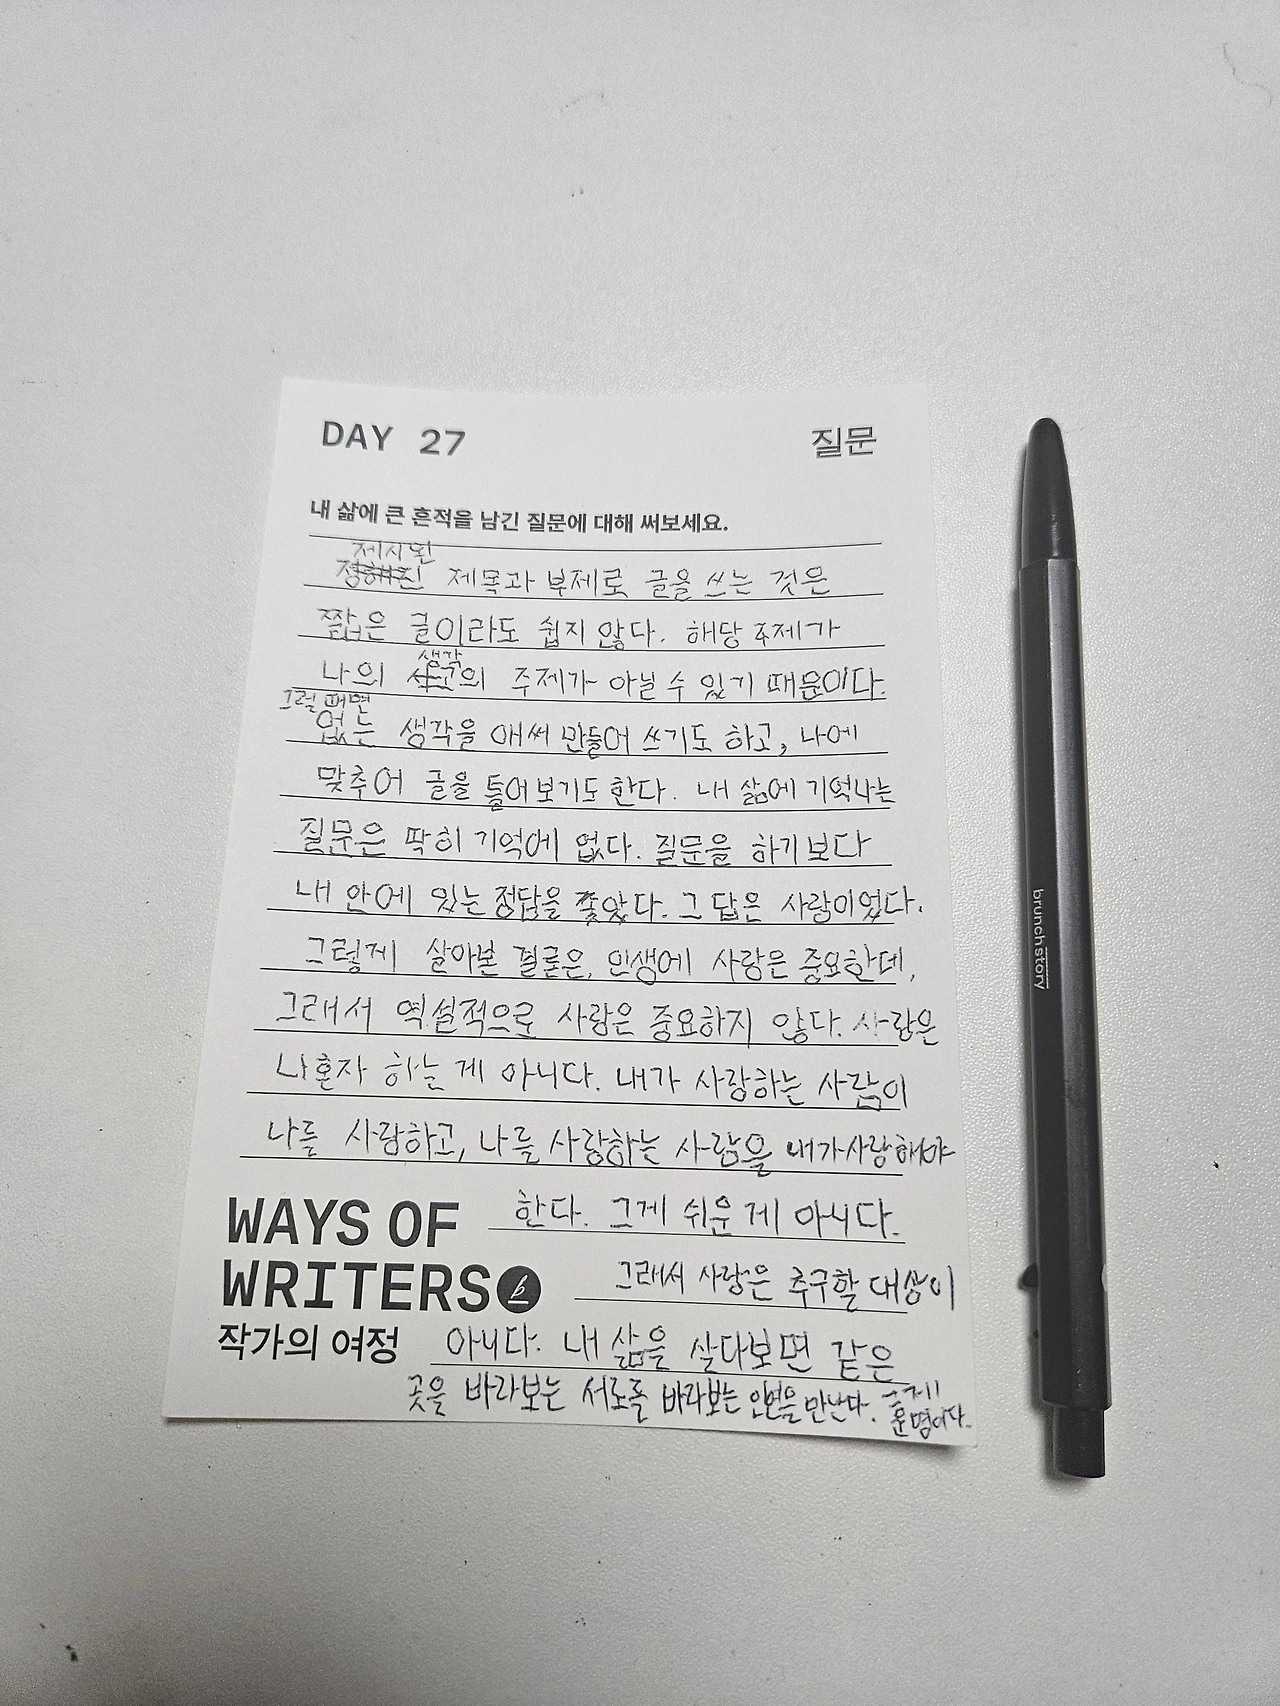 DAY 27
질문
내 삶에 큰 흔적을 남긴 질문에 대해 써보세요.
제시된
정해진 제목과 부제로 글을 쓰는 것은
짧은 글이라도 쉽지 않다. 해당 주제가
생각
나의 사고의 주제가 아닐 수 있기 때문이다.
그럴 때면
없는 생각을 애써 만들어 쓰기도 하고, 나에
맞추어 글을 틀어보기도 한다. 내 삶에 기억나는
질문은 딱히 기억에 없다. 질문을 하기보다
내 안에 있는 정답을 쫓았다. 그 답은 사랑이었다.
그렇게 살아본 결론은, 인생에 사랑은 중요한데,
그래서 역설적으로 사랑은 중요하지 않다. 사랑은
나 혼자 하는 게 아니다. 내가 사랑하는 사람이
나를 사랑하고, 나를 사랑하는 사람을 내가 사랑해야
한다. 그게 쉬운 게 아니다.
그래서 사랑은 추구할 대상이
아니다. 내 삶을 살다보면 같은
곳을 바라보는 서로를 바라보는 인연을 만난다. 그게
운명이다.
WAYS OF
WRITERS
작가의 여정
brunchstory